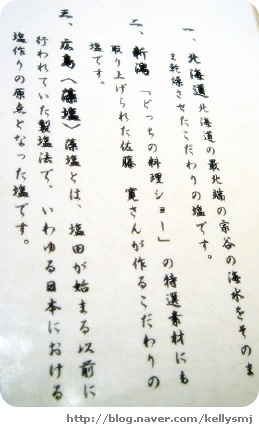 一、北海道 北海道の最北端の宗谷の海水をそのま
ま乾燥させたこだわりの塩です。
二、新潟 「どっちの料理ショー」の特選素材にも
取り上げられた佐藤 寛さんが作るこだわりの
塩です。
三、広島〈藻塩〉藻塩とは、塩田が始まる以前に
行われていた製塩法で、いわゆる日本における
塩作りの原点となった塩です。
http://blog.naver.com/kellysmj